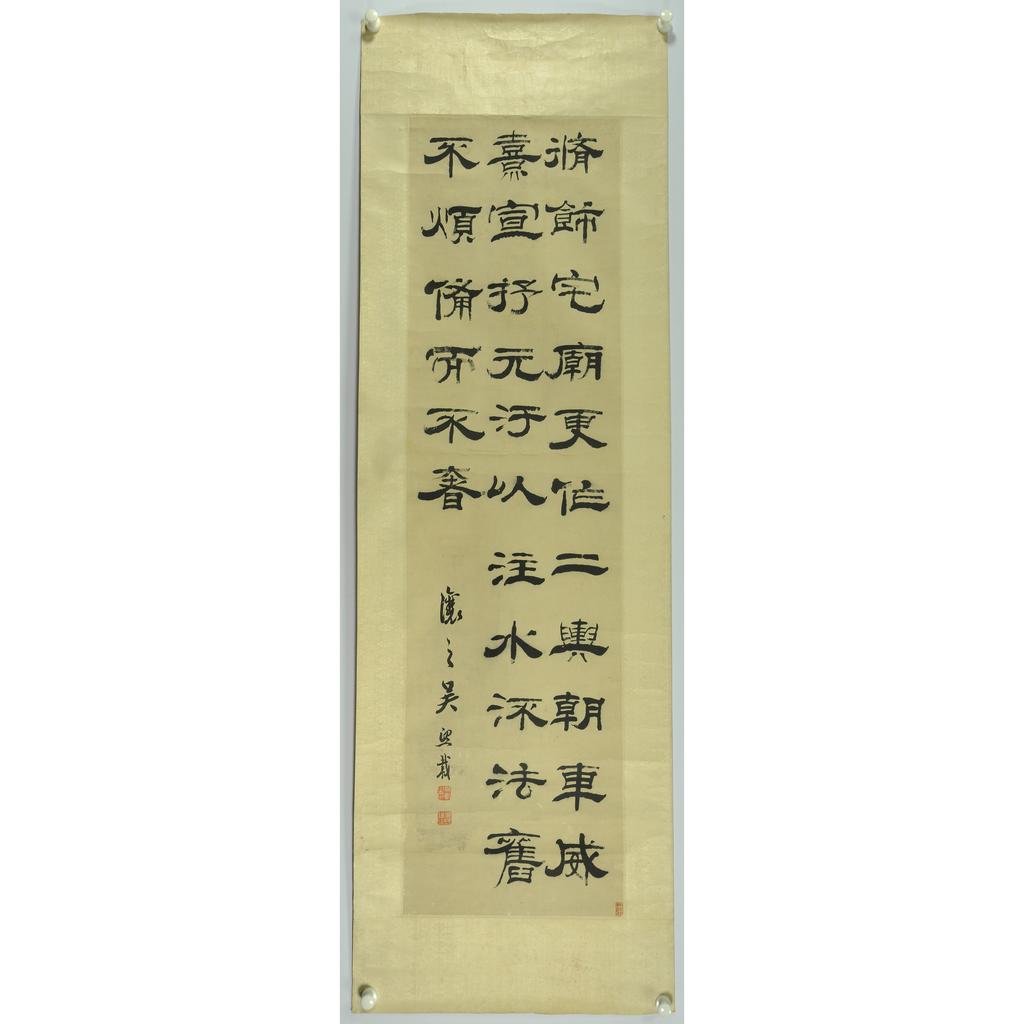 脩飾宅廟更作二輿朝車威
熹宣抒元汙以注水流法舊
不煩備而不奢
讓之吳熙載